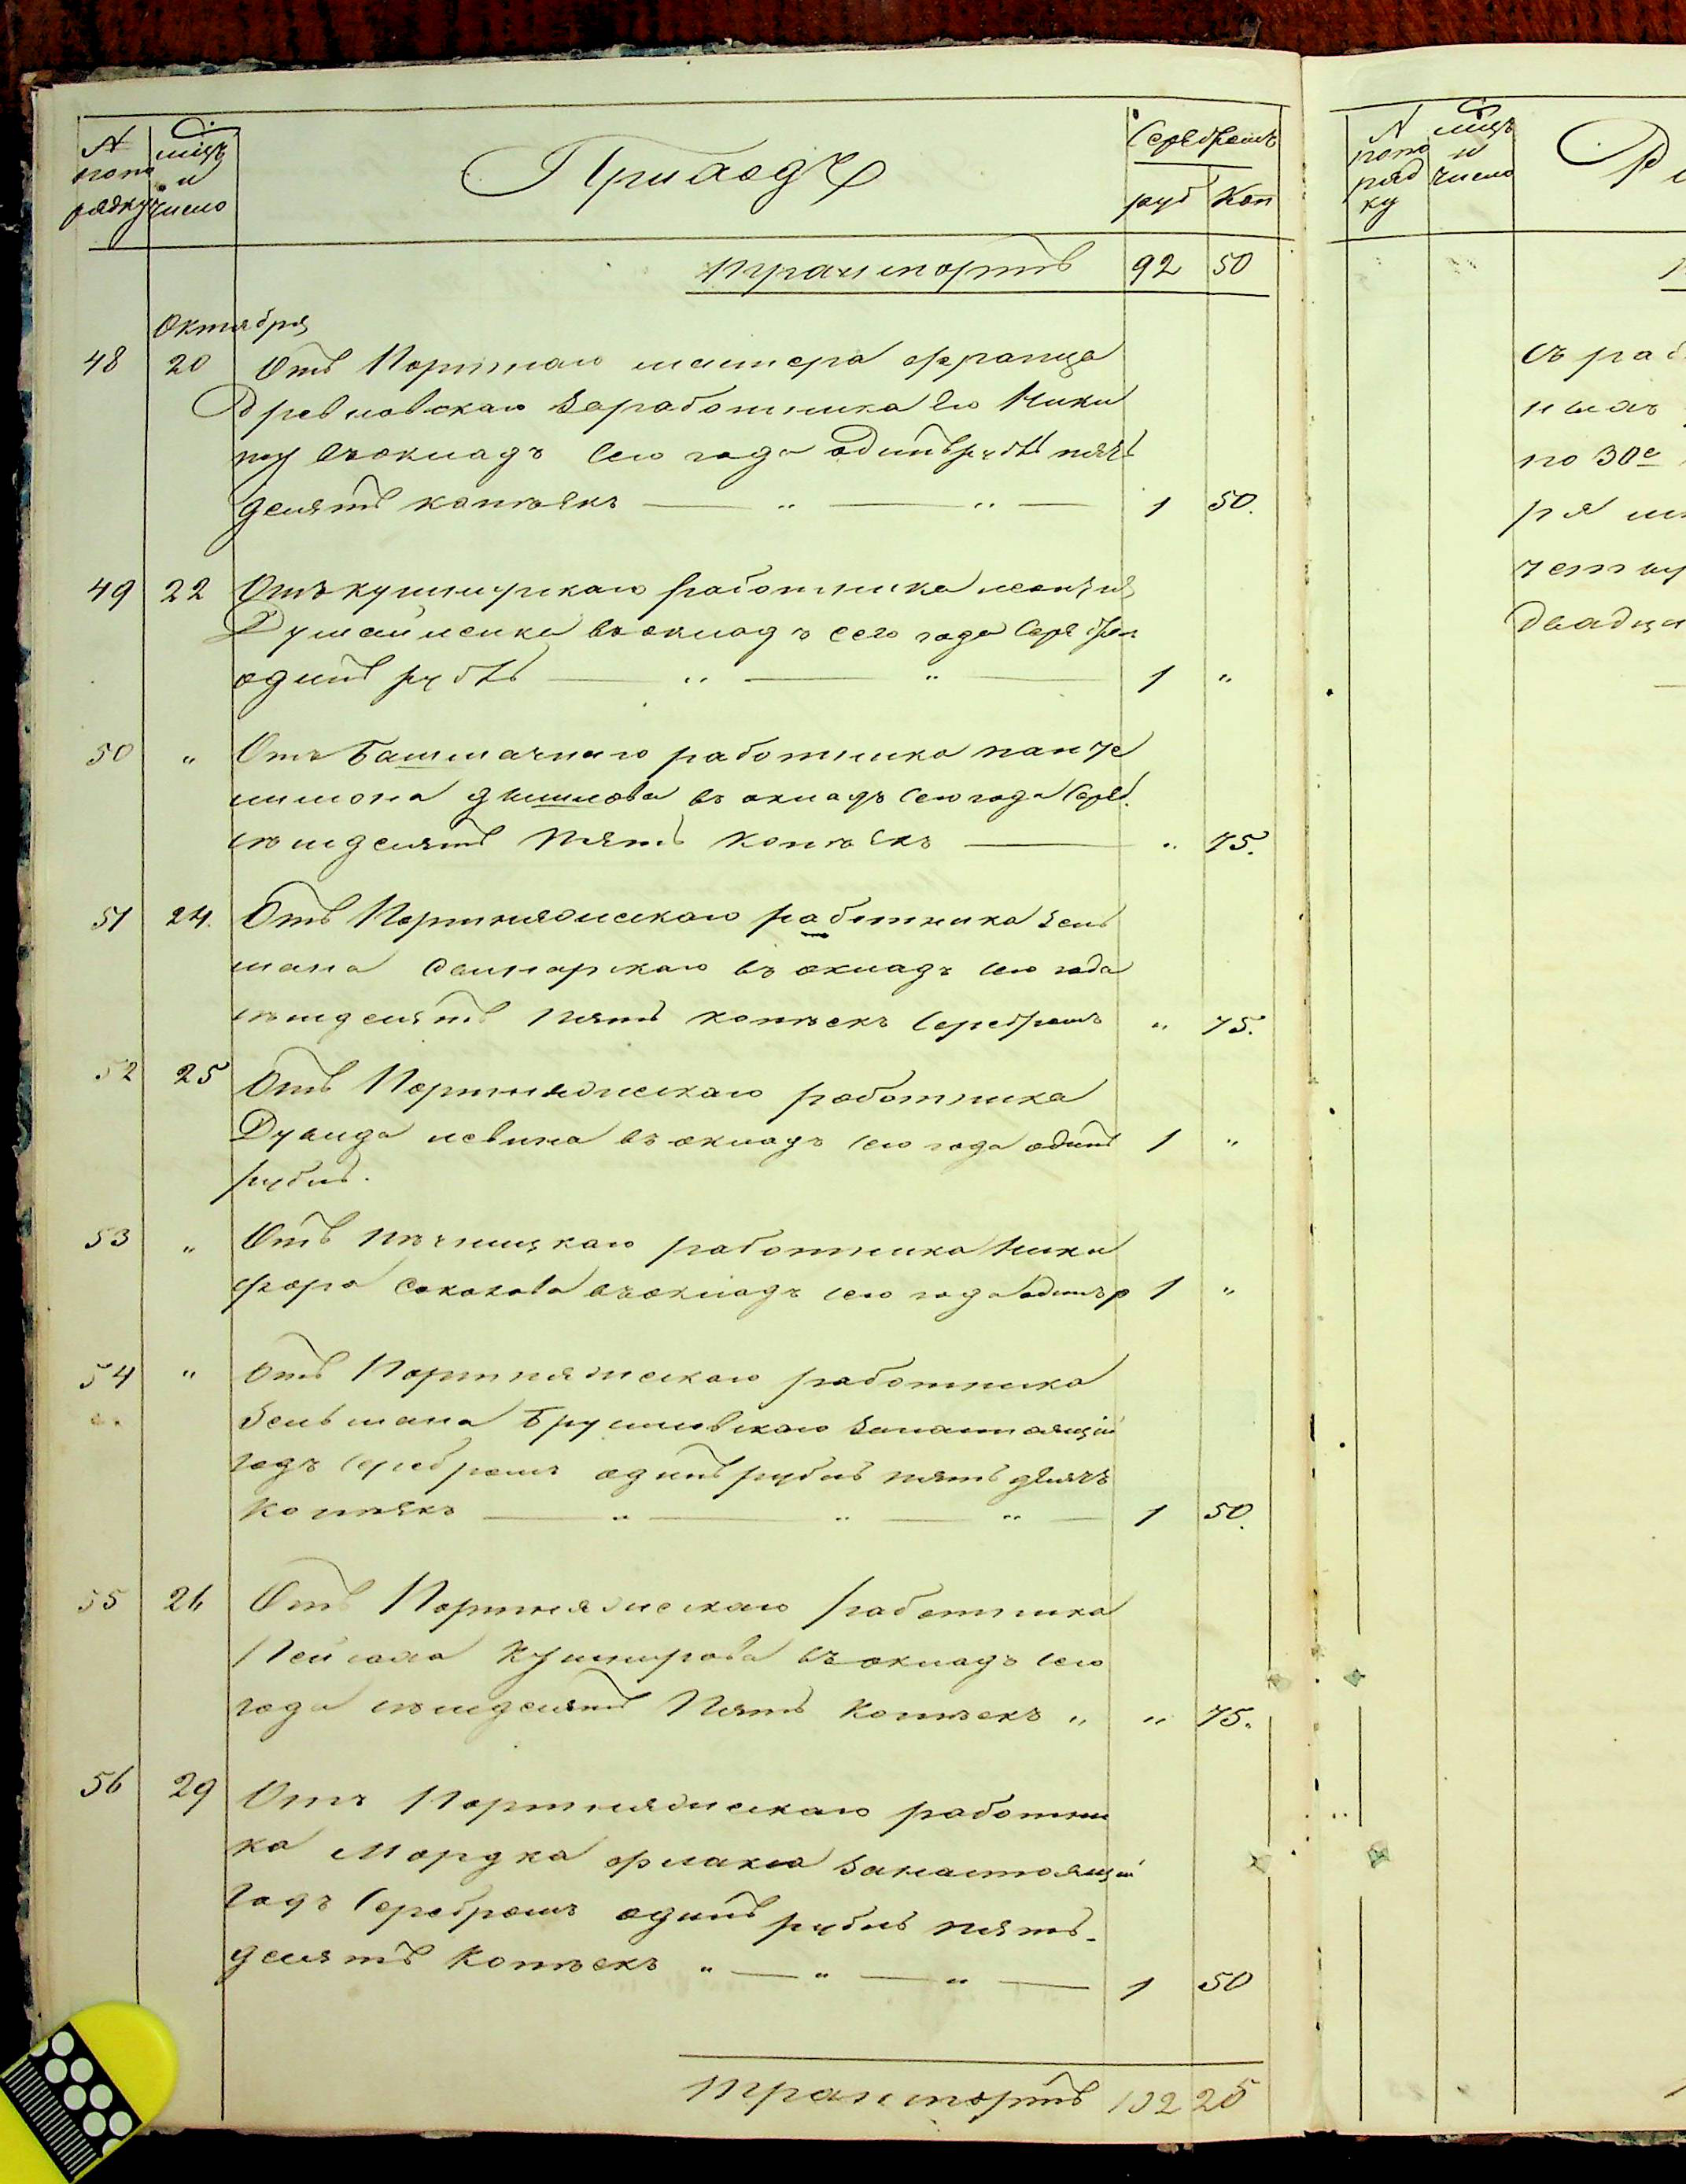 № попо рядку
мцъ и число
Приходъ
Серебромъ
руб Коп
транспортъ 92 50
Октября
48 20 Отъ Портнаго мастера Франца
Древновскаго заработника его Ники
ту въокладъ сего года одинърубль пять
десятъ копѣекъ 1 50.
49 22 Отъ кушнирскаго работника
въокладъ сего года Серебром
одинъ рубль 1 "
50 " Отъ Башмачнаго работника панте
лимона въ окладъ сего года Сереб.
семдесятъ Пять Копѣекъ " 75.
51 24. Отъ Портняжескаго работника Зель
мана въ окладъ сего года
семдесятъ Пять копѣекъ Серебромъ " 75.
52 25 Отъ Портняжескаго работника
Дувида левина въ окладъ сего года одинъ 1 "
рубль.
53 " Отъ Печницкаго работника Ники
фора Соколова въокладъ сего года одинъ р 1 "
54 " Отъ Портняжескаго работника
Зельмана занастоящій
годъ Серебромъ одинъ рубль пятьдесятъ
Копѣекъ 1 50.
55 26 Отъ Портняжескаго работника
Кушнирова въокладъ сего
года семдесятъ Пять Копѣекъ " " 75.
56 29 Отъ Портняжескаго работни
ка Мордка занастоящій
Годъ Серебромъ одинъ рубль пять-
десятъ Копѣекъ " 1 50
транспортъ 102 25
№ попо ряд ку
мцъ и число
Съ раб
по 30е
двадца